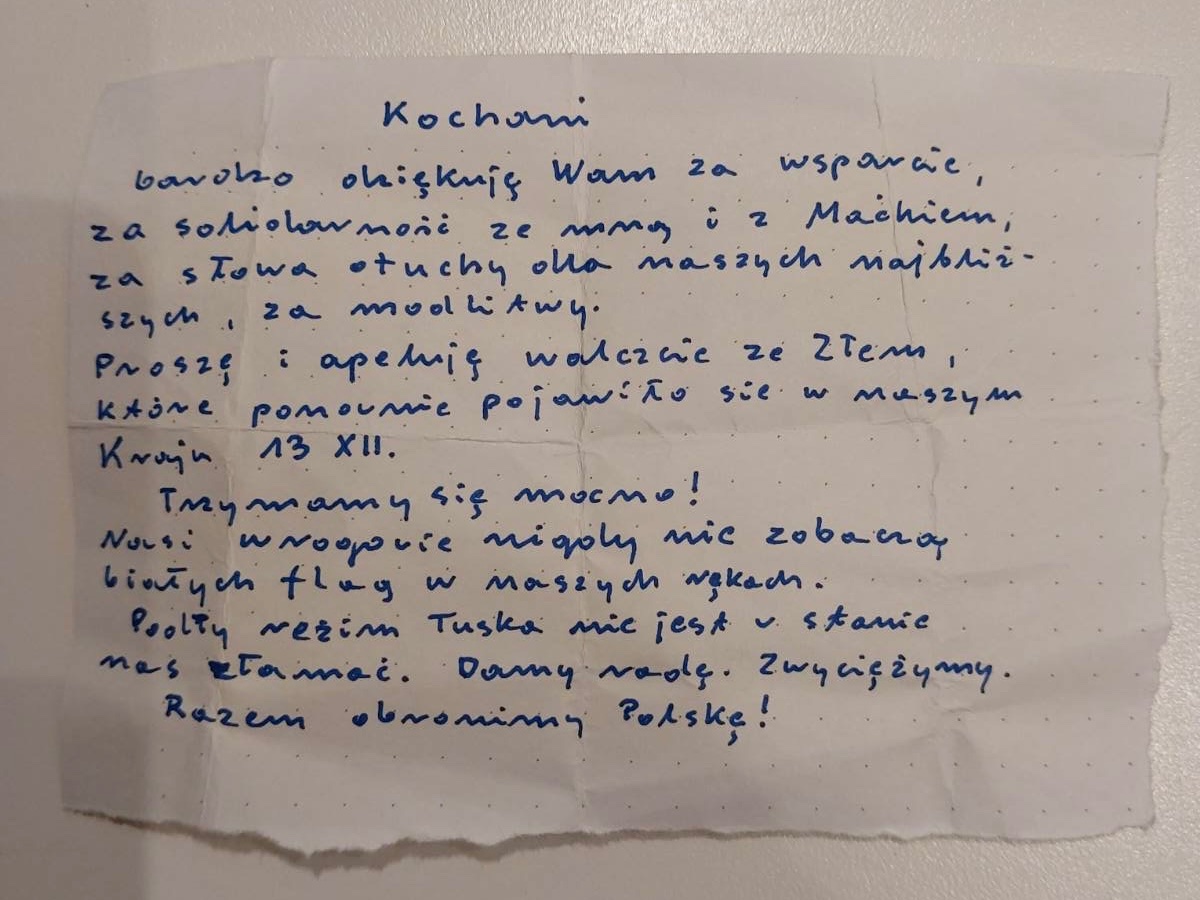 Kochani
bardzo dziękuję Wam za wsparcie,
za solidarność ze mną i z Maćkiem,
za słowa otuchy dla naszych najbliż-
szych, za modlitwy.
Proszę i apeluję walczcie ze Złem,
które ponownie pojawiło sie w naszym
Kraju 13 XII.
Trzymamy się mocno!
Nasi wrogowie nigdy nie zobaczą
białych flag w naszych rękach.
Podły reżim Tuska nie jest w stanie
nas złamać. Damy radę. Zwyciężymy.
Razem obronimy Polskę!